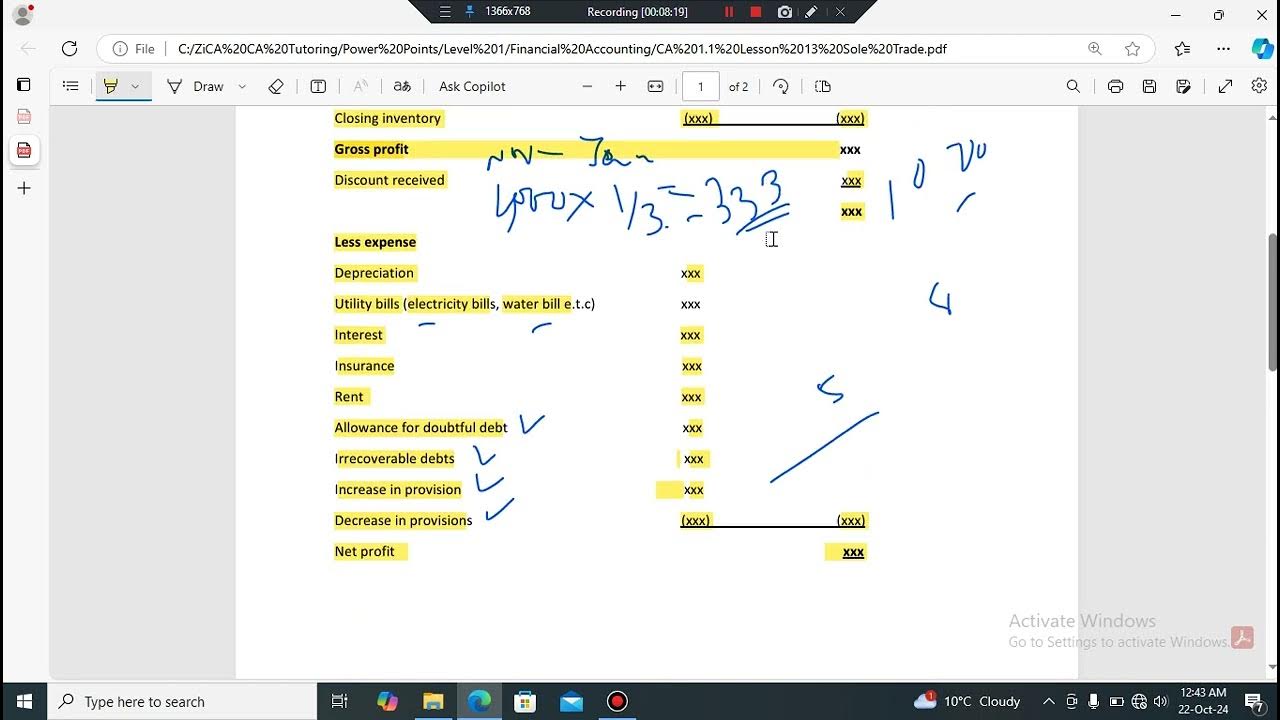 1366x768 Recording [00:08:19]
File C:/ZiCA%20CA%20Tutoring/Power%20Points/Level%201/Financial%20Accounting/CA%201.1%20Lesson%2013%20Sole%20Trade.pdf
Draw Ask Copilot 1 of 2
Closing inventory (xxx) (xxx)
Gross profit xxx
Discount received xxx
1/3 = 333
xxx
Less expense
Depreciation xxx
Utility bills (electricity bills, water bill e.t.c) xxx
Interest xxx
Insurance xxx
Rent xxx
Allowance for doubtful debt xxx
Irrecoverable debts xxx
Increase in provision xxx
Decrease in provisions (xxx) (xxx)
Net profit xxx
Activate Windows
Go to Settings to activate Windows.
Type here to search
1
10°C Cloudy
12:43 AM
22-Oct-24
7